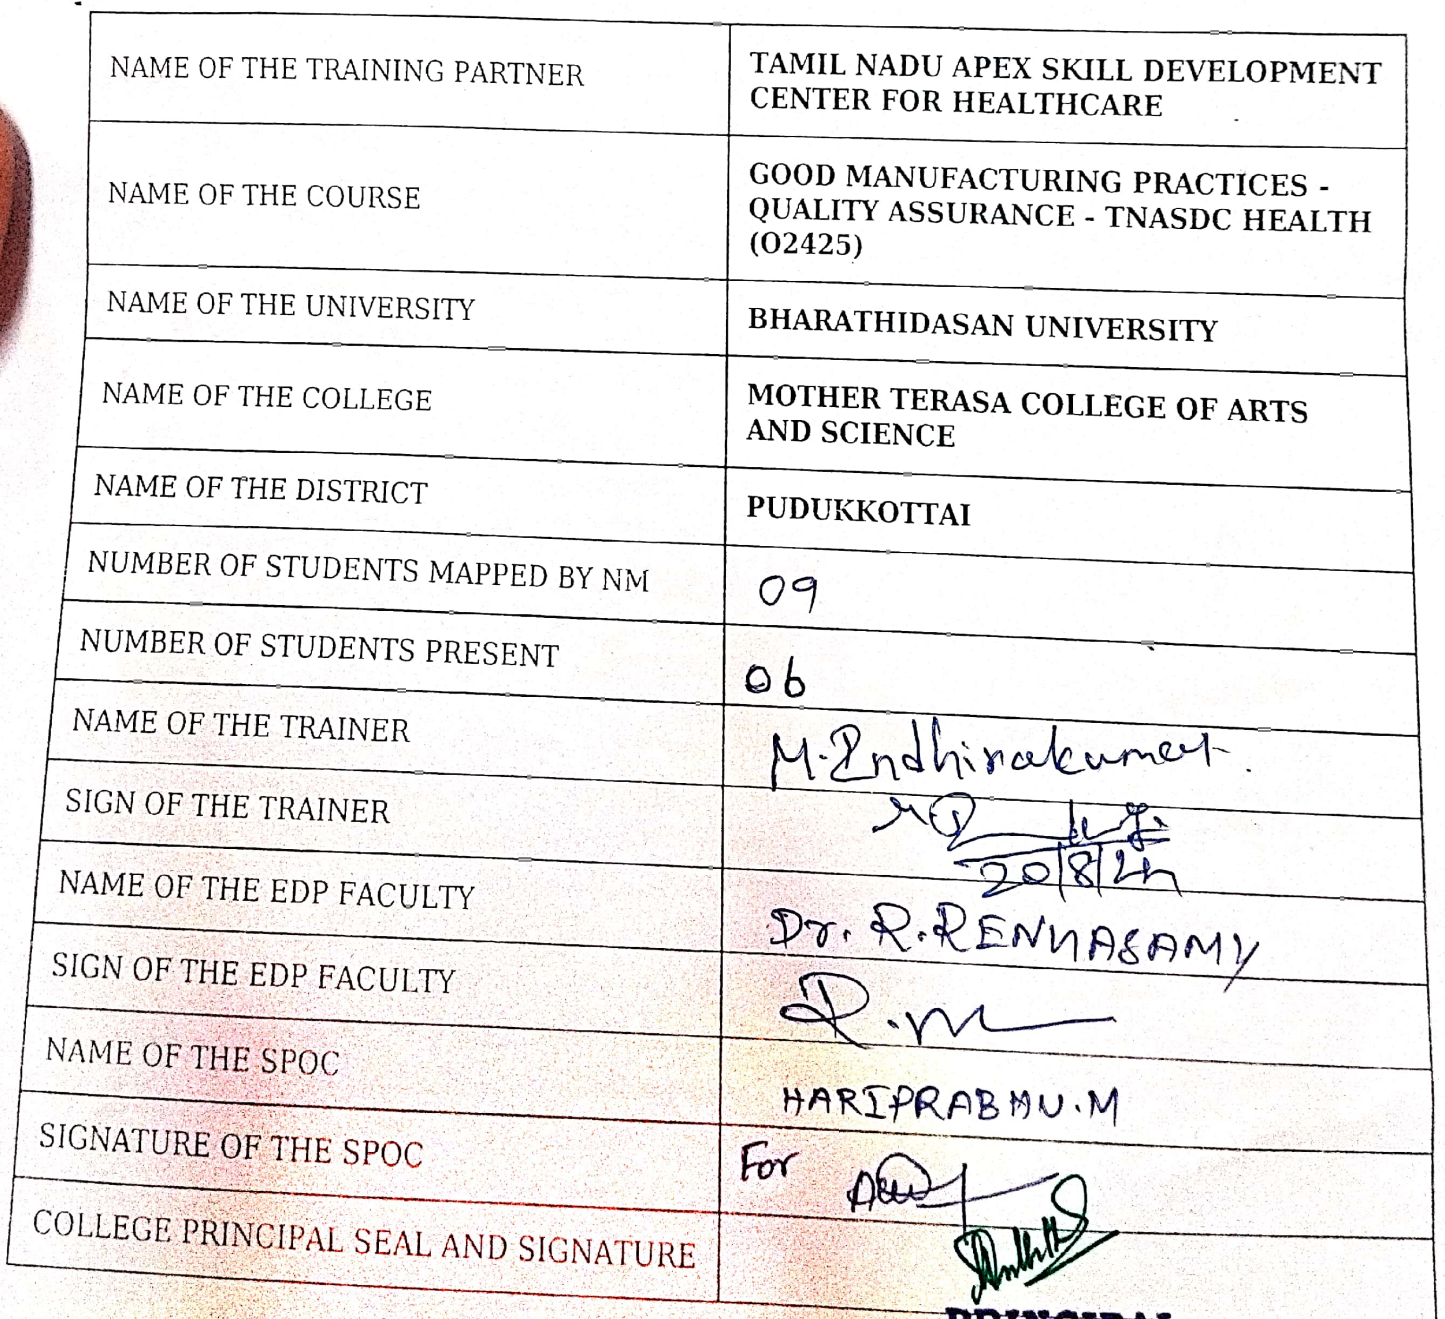 NAME OF THE TRAINING PARTNER
TAMIL NADU APEX SKILL DEVELOPMENT
CENTER FOR HEALTHCARE
NAME OF THE COURSE
GOOD MANUFACTURING PRACTICES -
QUALITY ASSURANCE - TNASDC HEALTH
(O2425)
NAME OF THE UNIVERSITY
BHARATHIDASAN UNIVERSITY
NAME OF THE COLLEGE
MOTHER TERASA COLLEGE OF ARTS
AND SCIENCE
NAME OF THE DISTRICT
PUDUKKOTTAI
NUMBER OF STUDENTS MAPPED BY NM
09
NUMBER OF STUDENTS PRESENT
06
NAME OF THE TRAINER
M.Indhirakumar.
SIGN OF THE TRAINER
20/8/24
NAME OF THE EDP FACULTY
Dr. R.RENHASAMY
SIGN OF THE EDP FACULTY
NAME OF THE SPOC
HARIPRABHU.M
SIGNATURE OF THE SPOC
For
COLLEGE PRINCIPAL SEAL AND SIGNATURE
PRINCIPAL